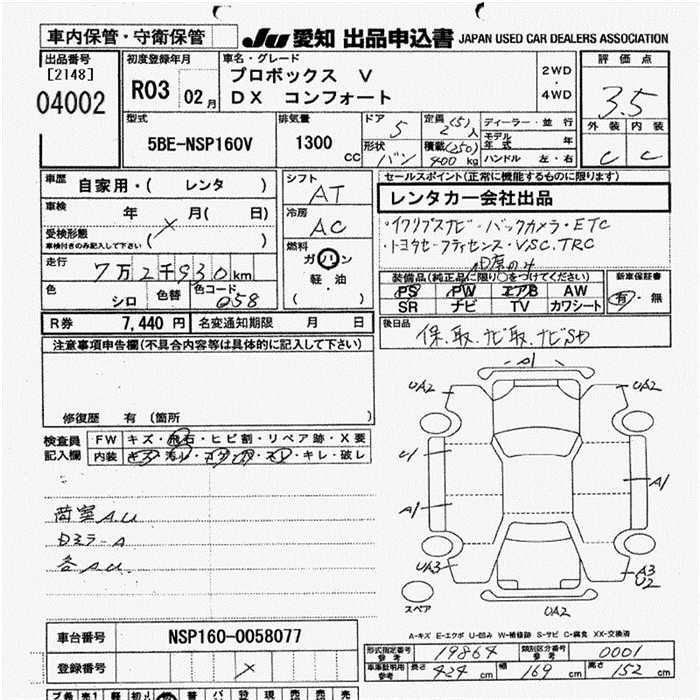 車内保管・守衛保管
JU 愛知 出品申込書 JAPAN USED CAR DEALERS ASSOCIATION
出品番号
[2148]
04002
初度登録年月
R03 02月
車名・グレード
プロボックス V
DX コンフォート
2WD
・
4WD
評価点
3.5
外装 内装
C C
型式
5BE-NSP160V
排気量
1300 cc
ドア 5
形状 バン
定員 (5) 2人
積載 (250) 400 kg
ディーラー・並行
モデル年式 年
ハンドル 左・右
車歴 自家用・( レンタ )
車検 年 月( 日)
受検形態
車検付きのみ記入して下さい ( )
走行 7万2千930km
色 シロ 色替 色コード 058
シフト AT
冷房 AC
燃料
ガソリン
軽・油
( )
セールスポイント(正常に機能するものに限ります)
レンタカー会社出品
・イクリプスナビ・バックカメラ・ETC
・トヨタセーフティセンス・VSC.TRC
装備品(純正品に限り○をつけてください)
PS PW エアB AW
SR ナビ TV カワシート
新車保証書
有・無
R券 7,440 円 名変通知期限 月 日
後日品
保.取.ナビ取.ナビSD
注意事項申告欄(不具合内容等は具体的に記入して下さい)
修復歴 有 (箇所 )
検査員記入欄
FW キズ・飛石・ヒビ割・リペア跡・X要
内装 キズ・汚れ・コゲ・穴・スレ・キレ・破レ
荷室A.U
Dミラ-A
各A.U.
A1
UA2 UA2
U1
A1 A1
UA3 A3
U2
UA2
スペア
A-キズ E-エクボ U-凹み W-補修跡 S-サビ C-腐食 XX-交換済
車台番号 NSP160-0058077
登録番号
型式指定番号 参考 19864 類別区分番号 参考 0001
車庫証明用 参考 長さ 424 cm 幅 169 cm 高さ 152 cm